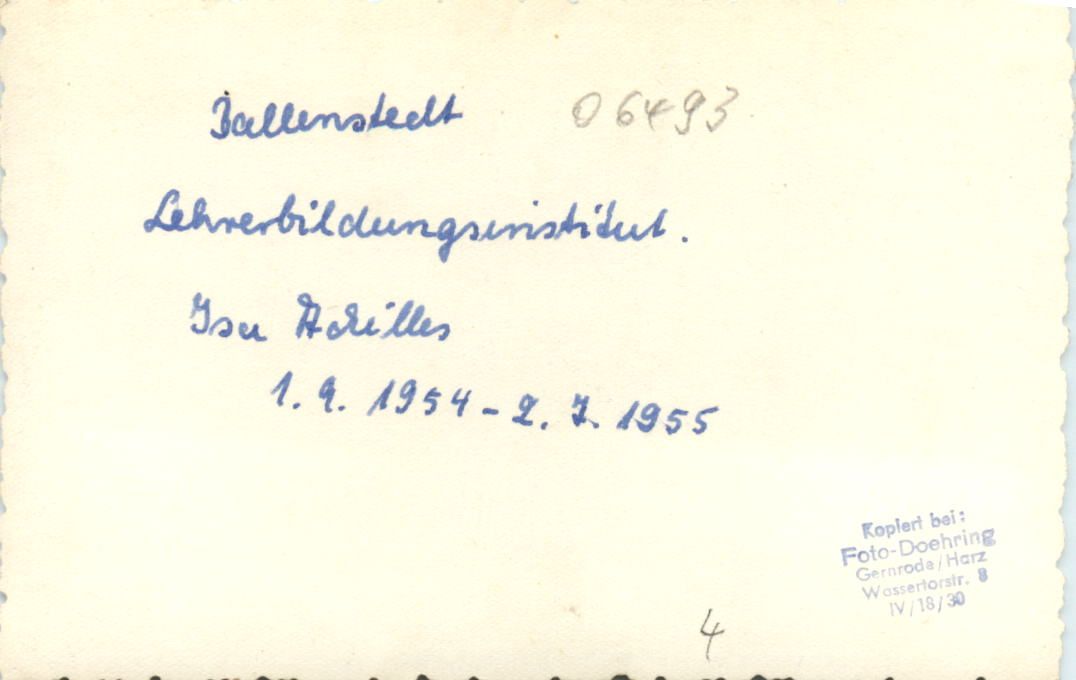 Ballenstedt 06493
Lehrerbildungsinstitut.
Isa Achilles
1. 9. 1954 - 2. 7. 1955
Kopiert bei:
Foto-Doehring
Gernrode/Harz
Wassertorstr. 8
IV/18/30
4